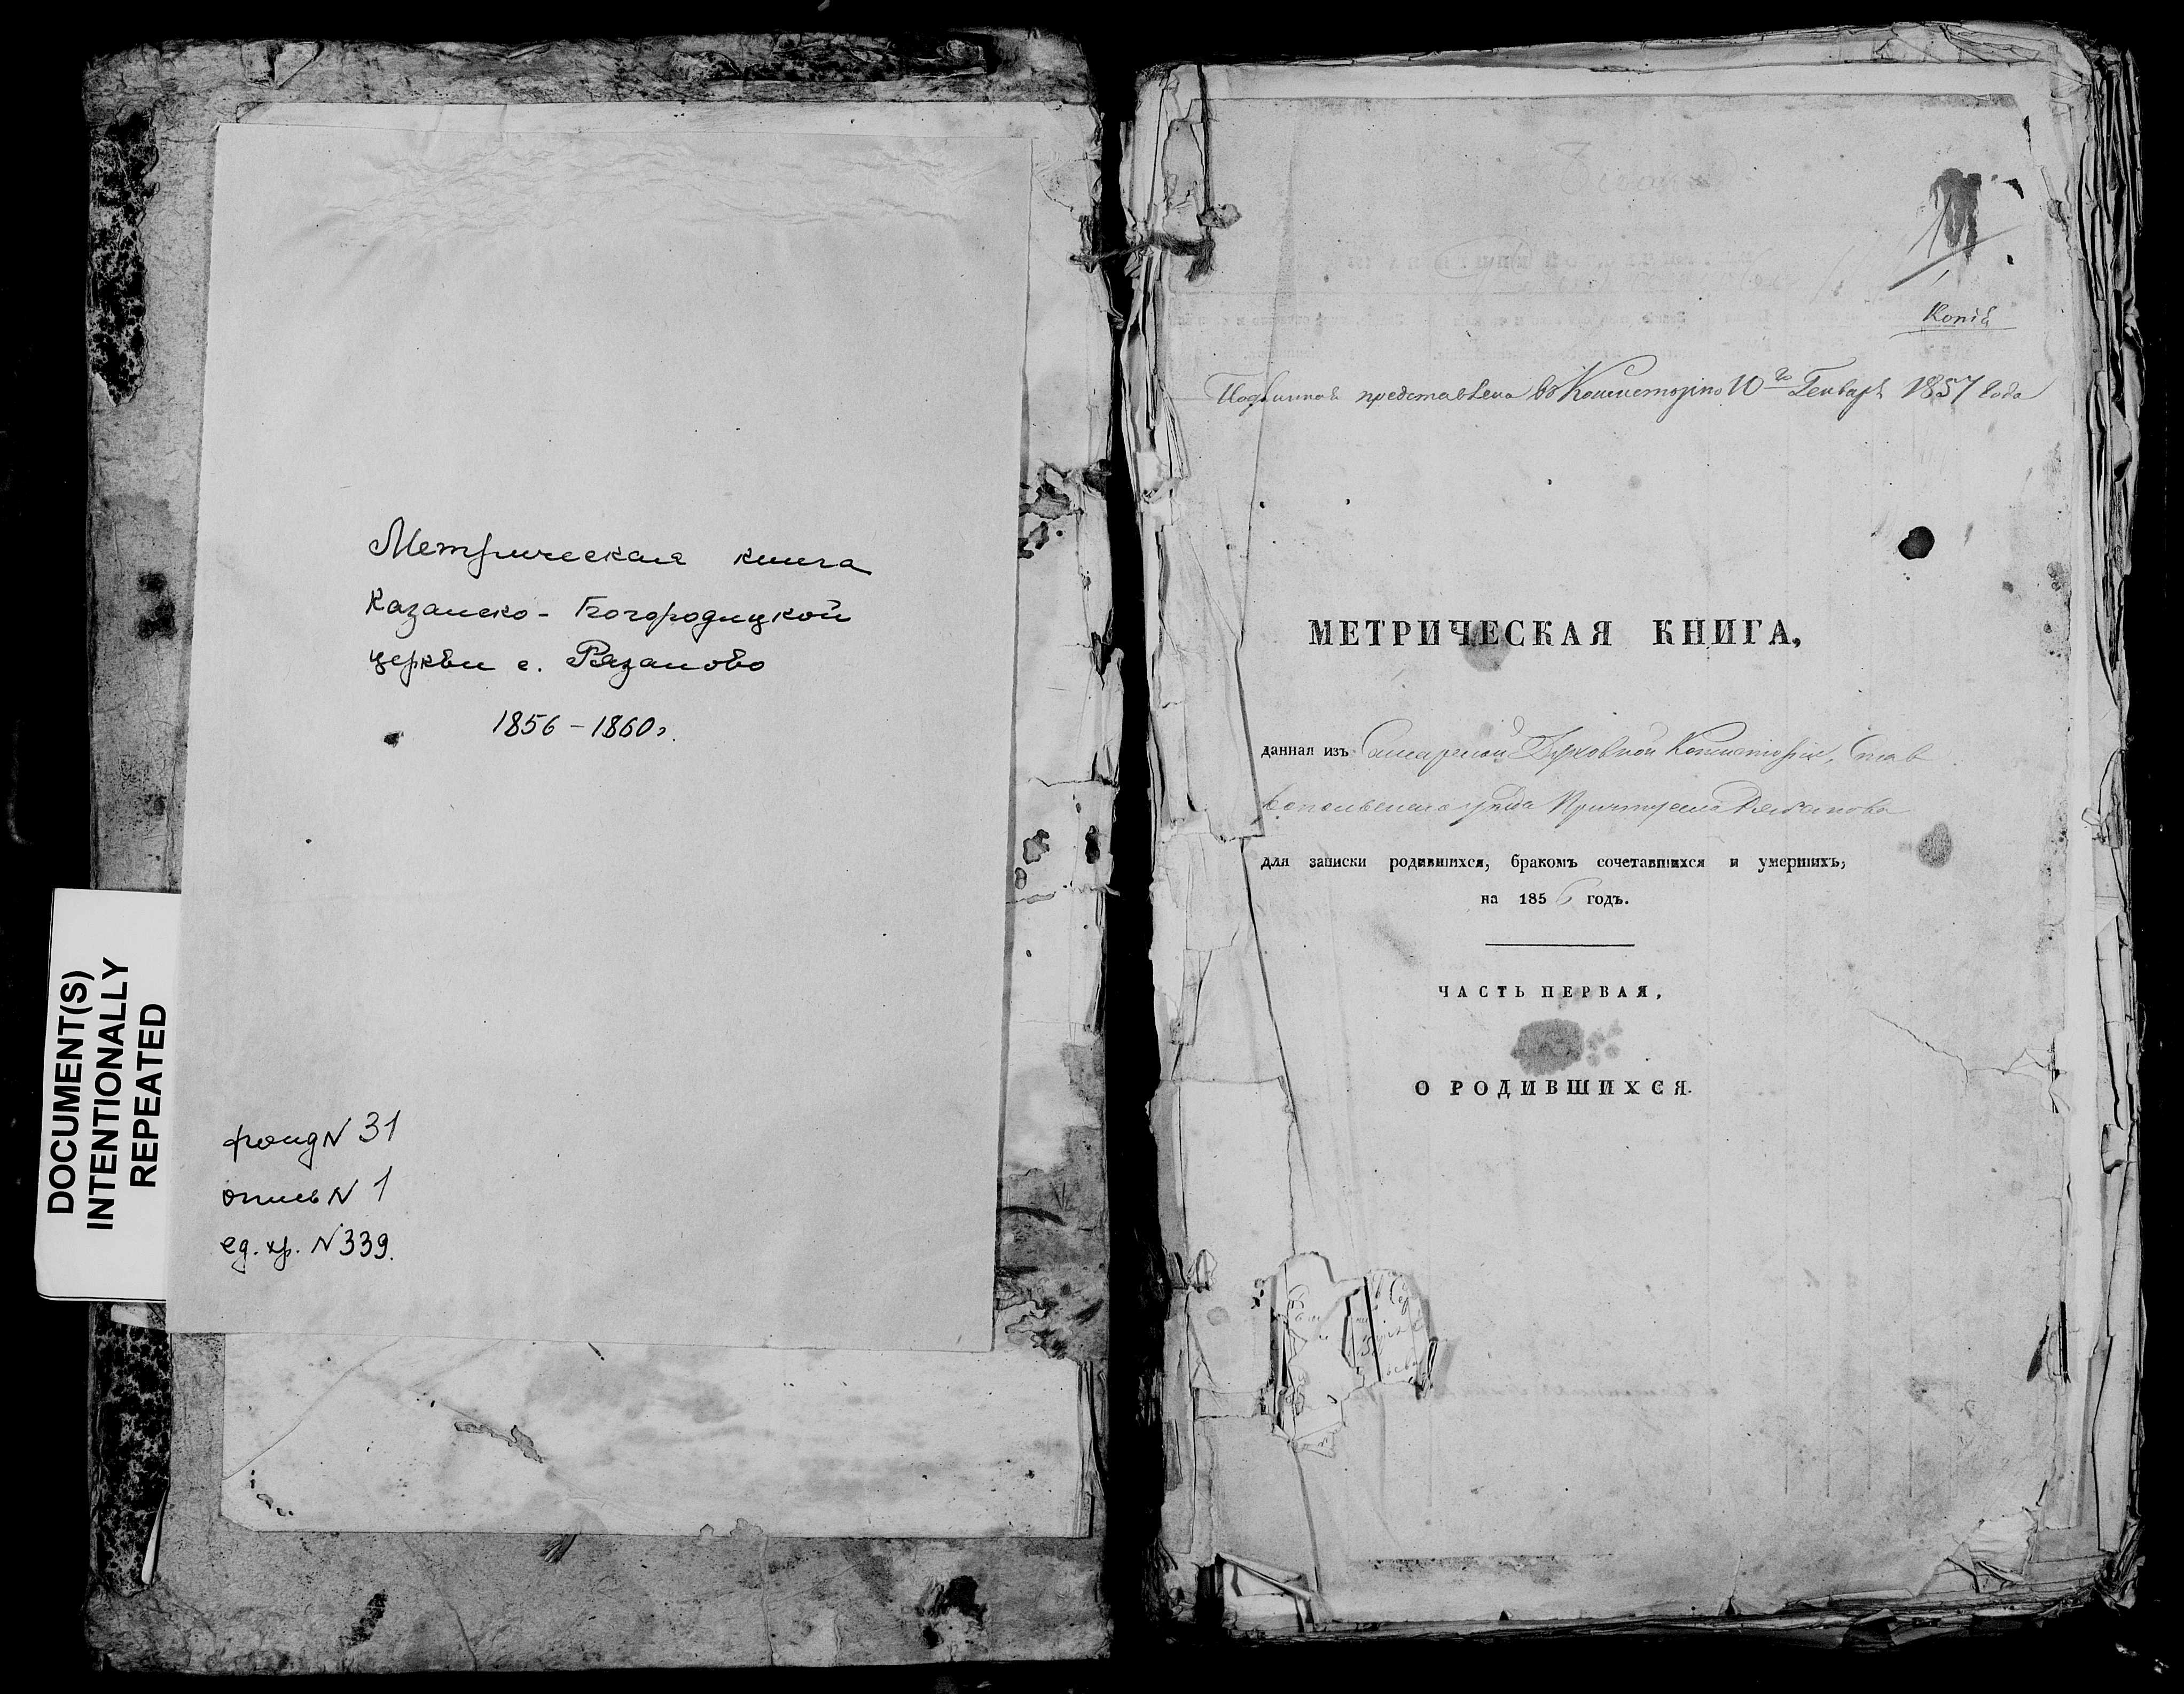 Метрическая книга
Казанско-Богородицкой
церкви с. Рязаново
1856-1860г.
фонд N 31
опись N 1
ед. хр. N 339.
DOCUMENT(S)
INTENTIONALLY
REPEATED
Копiя
представлена въ Консисторiю 10го Генваря 1857 года
МЕТРИЧЕСКАЯ КНИГА,
данная изъ Самарской Духовной Консисторiи, Став
для записки родившихся, бракомъ сочетавшихся и умершихъ,
на 1856 годъ.
ЧАСТЬ ПЕРВАЯ,
О РОДИВШИХСЯ.